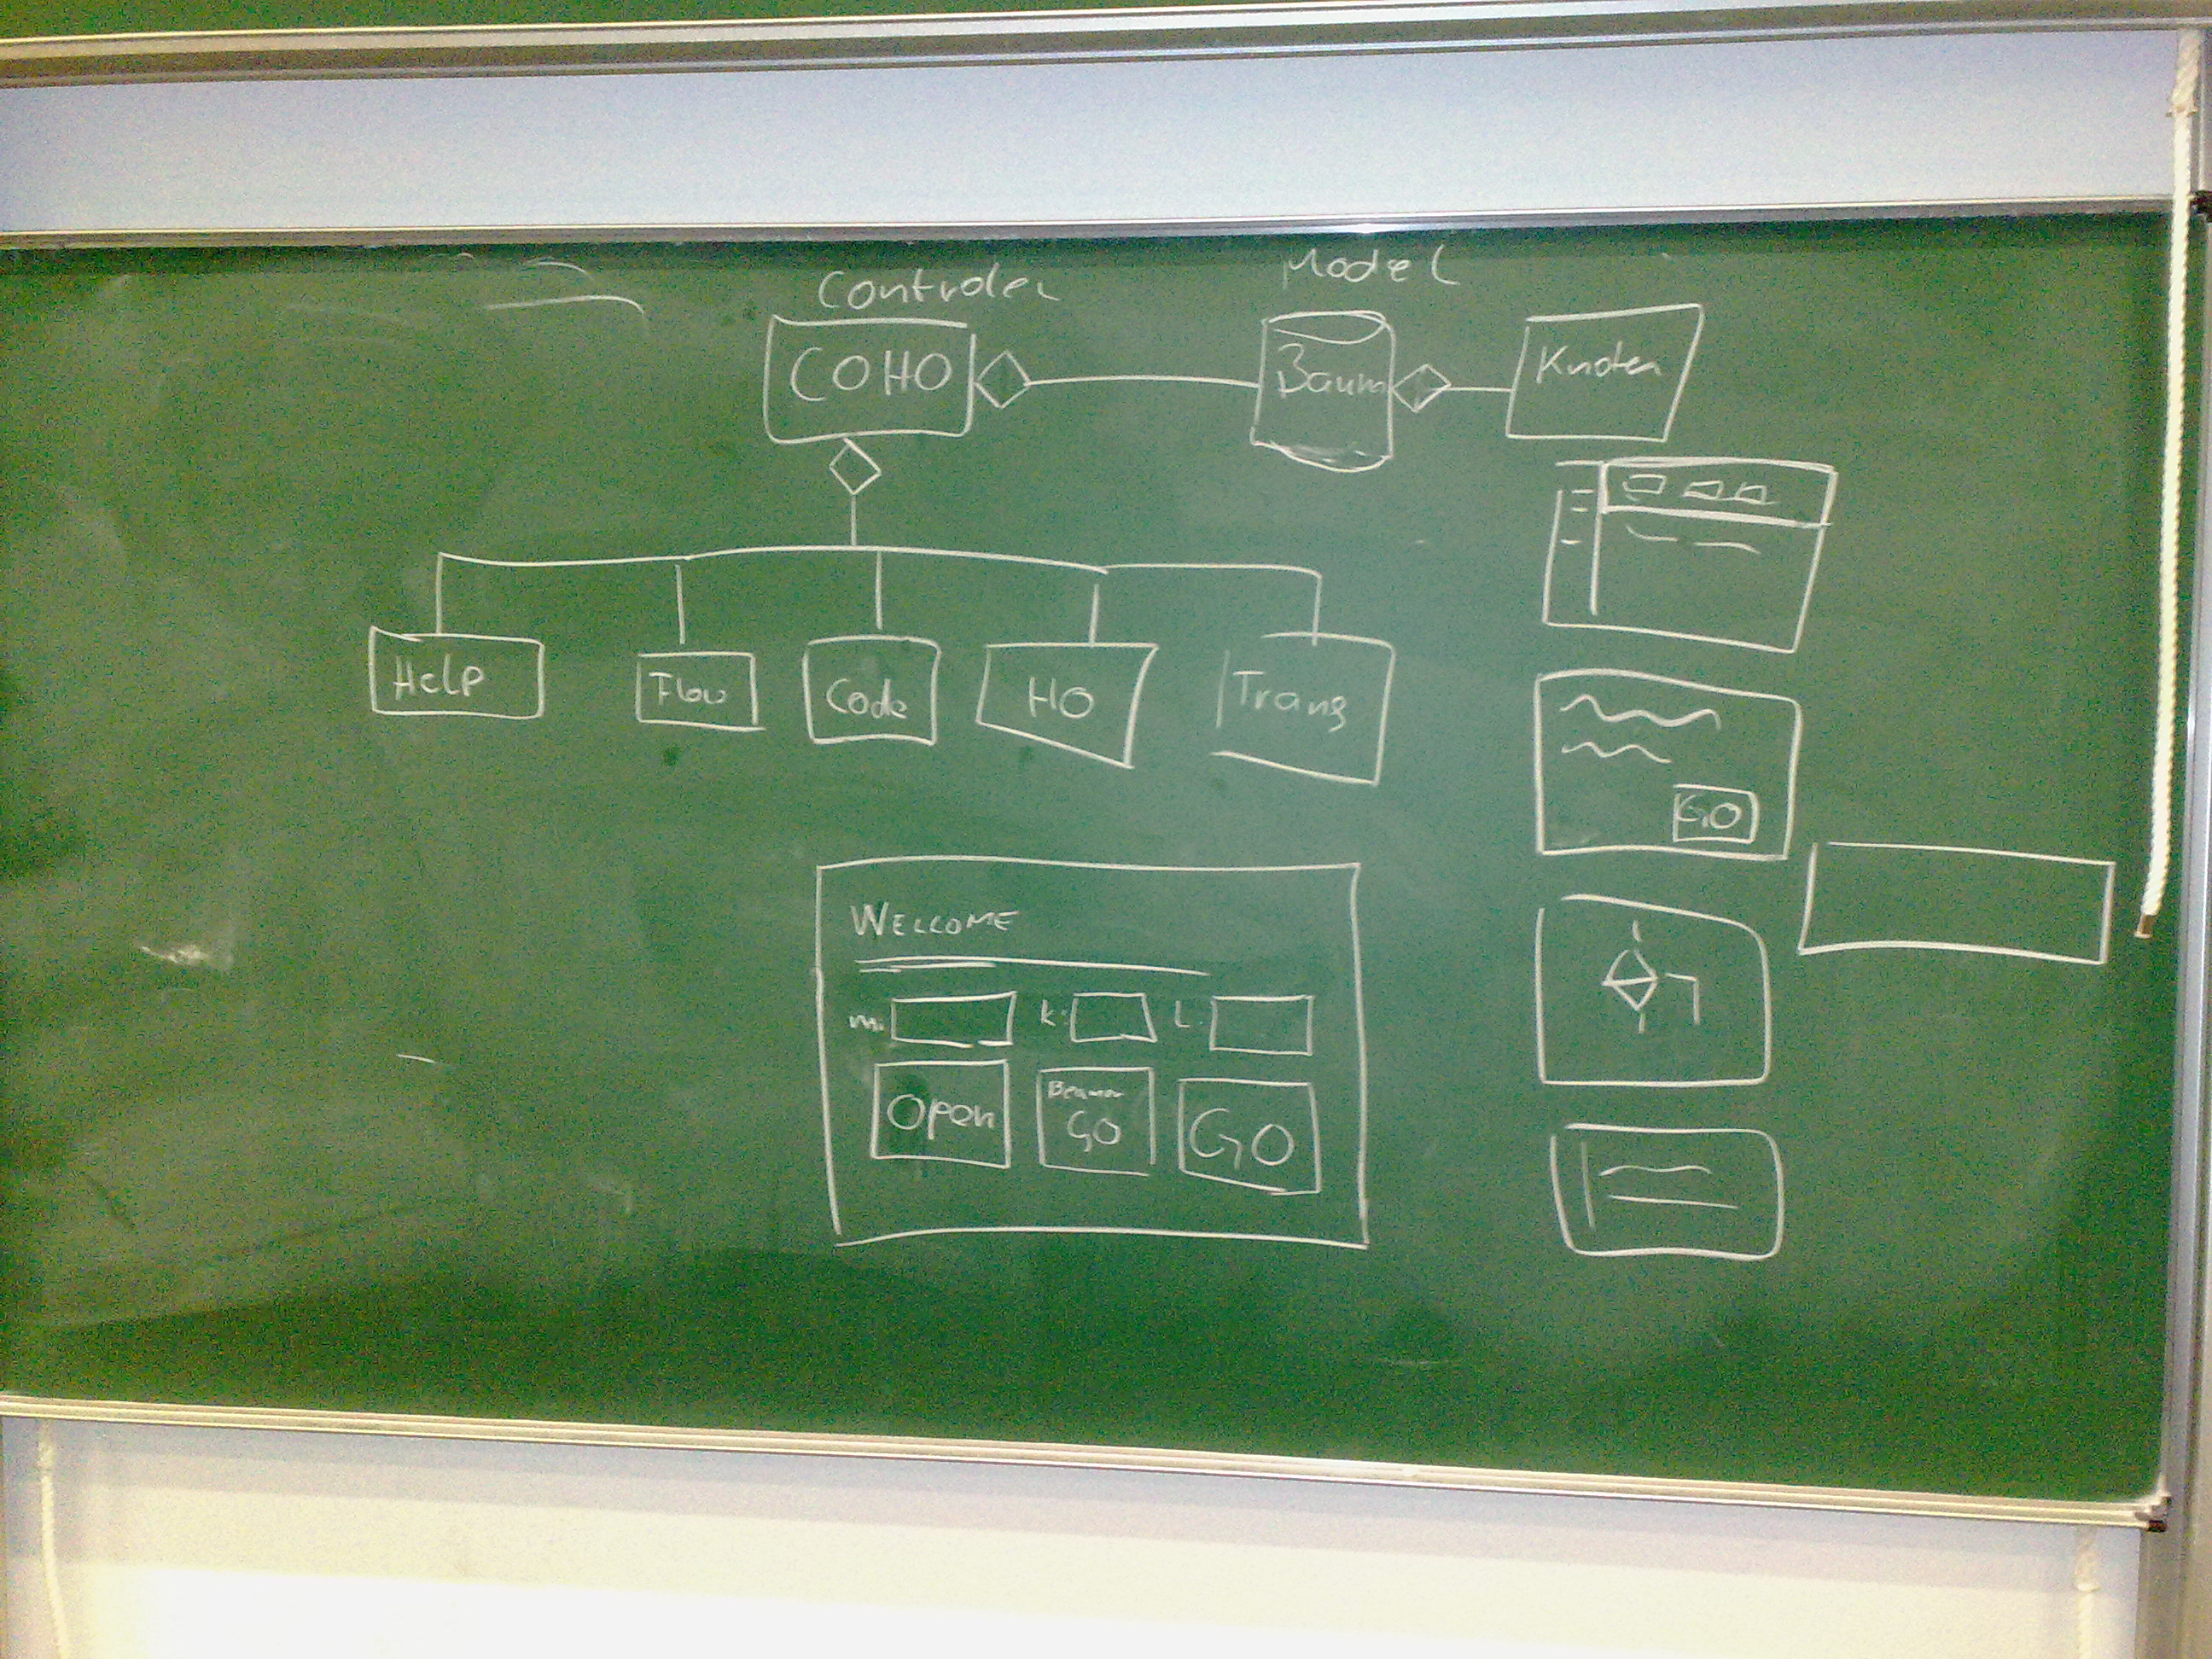 Controler
Model
COHO
Baum
Knoten
Help
Flow
Code
HO
Trans
GO
WELCOME
m:
k:
L:
Open
Beamer
GO
GO